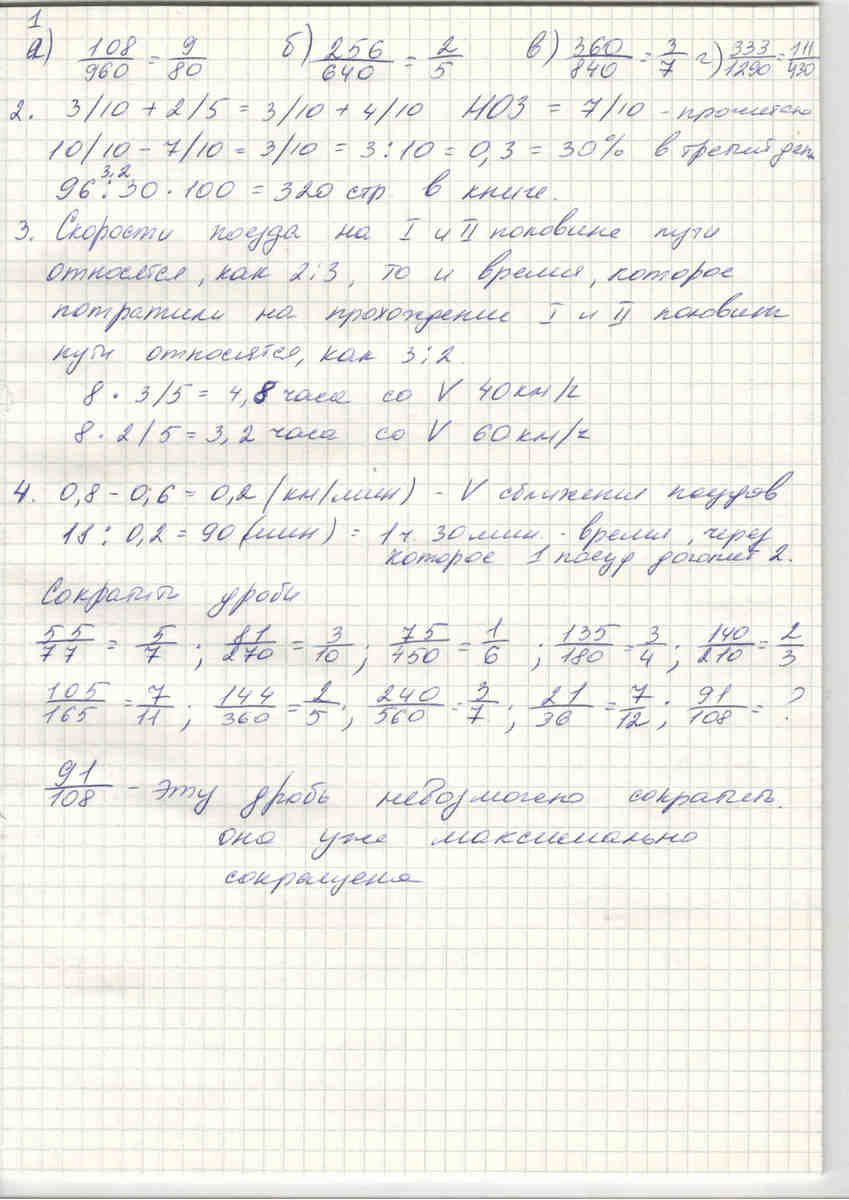 1
а) 108/960 = 9/80 б) 256/640 = 2/5 в) 360/840 = 3/7 г) 333/1290 = 111/430
2. 3/10 + 2/5 = 3/10 + 4/10 НОЗ = 7/10 - прочитано
10/10 - 7/10 = 3/10 = 3:10 = 0,3 = 30% в третий день
3,2
96 : 30 · 100 = 320 стр в книге.
3. Скорости поезда на I и II половине пути
относятся, как 2:3, то и время, которое
потратили на прохождение I и II половины
пути относятся, как 3:2.
8 · 3/5 = 4,8 часа со V 40 км/ч
8 · 2/5 = 3,2 часа со V 60 км/ч
4. 0,8 - 0,6 = 0,2 (км/мин) - V сближения поездов
18 : 0,2 = 90 (мин) = 1ч 30 мин. - время, через
которое 1 поезд догонит 2.
Сократить дроби
55/77 = 5/7 ; 81/270 = 3/10 ; 75/450 = 1/6 ; 135/180 = 3/4 ; 140/210 = 2/3
105/165 = 7/11 ; 144/360 = 2/5 ; 240/560 = 3/7 ; 21/36 = 7/12 ; 91/108 = ?
91/108 - Эту дробь невозможно сократить.
она уже максимально
сокращена